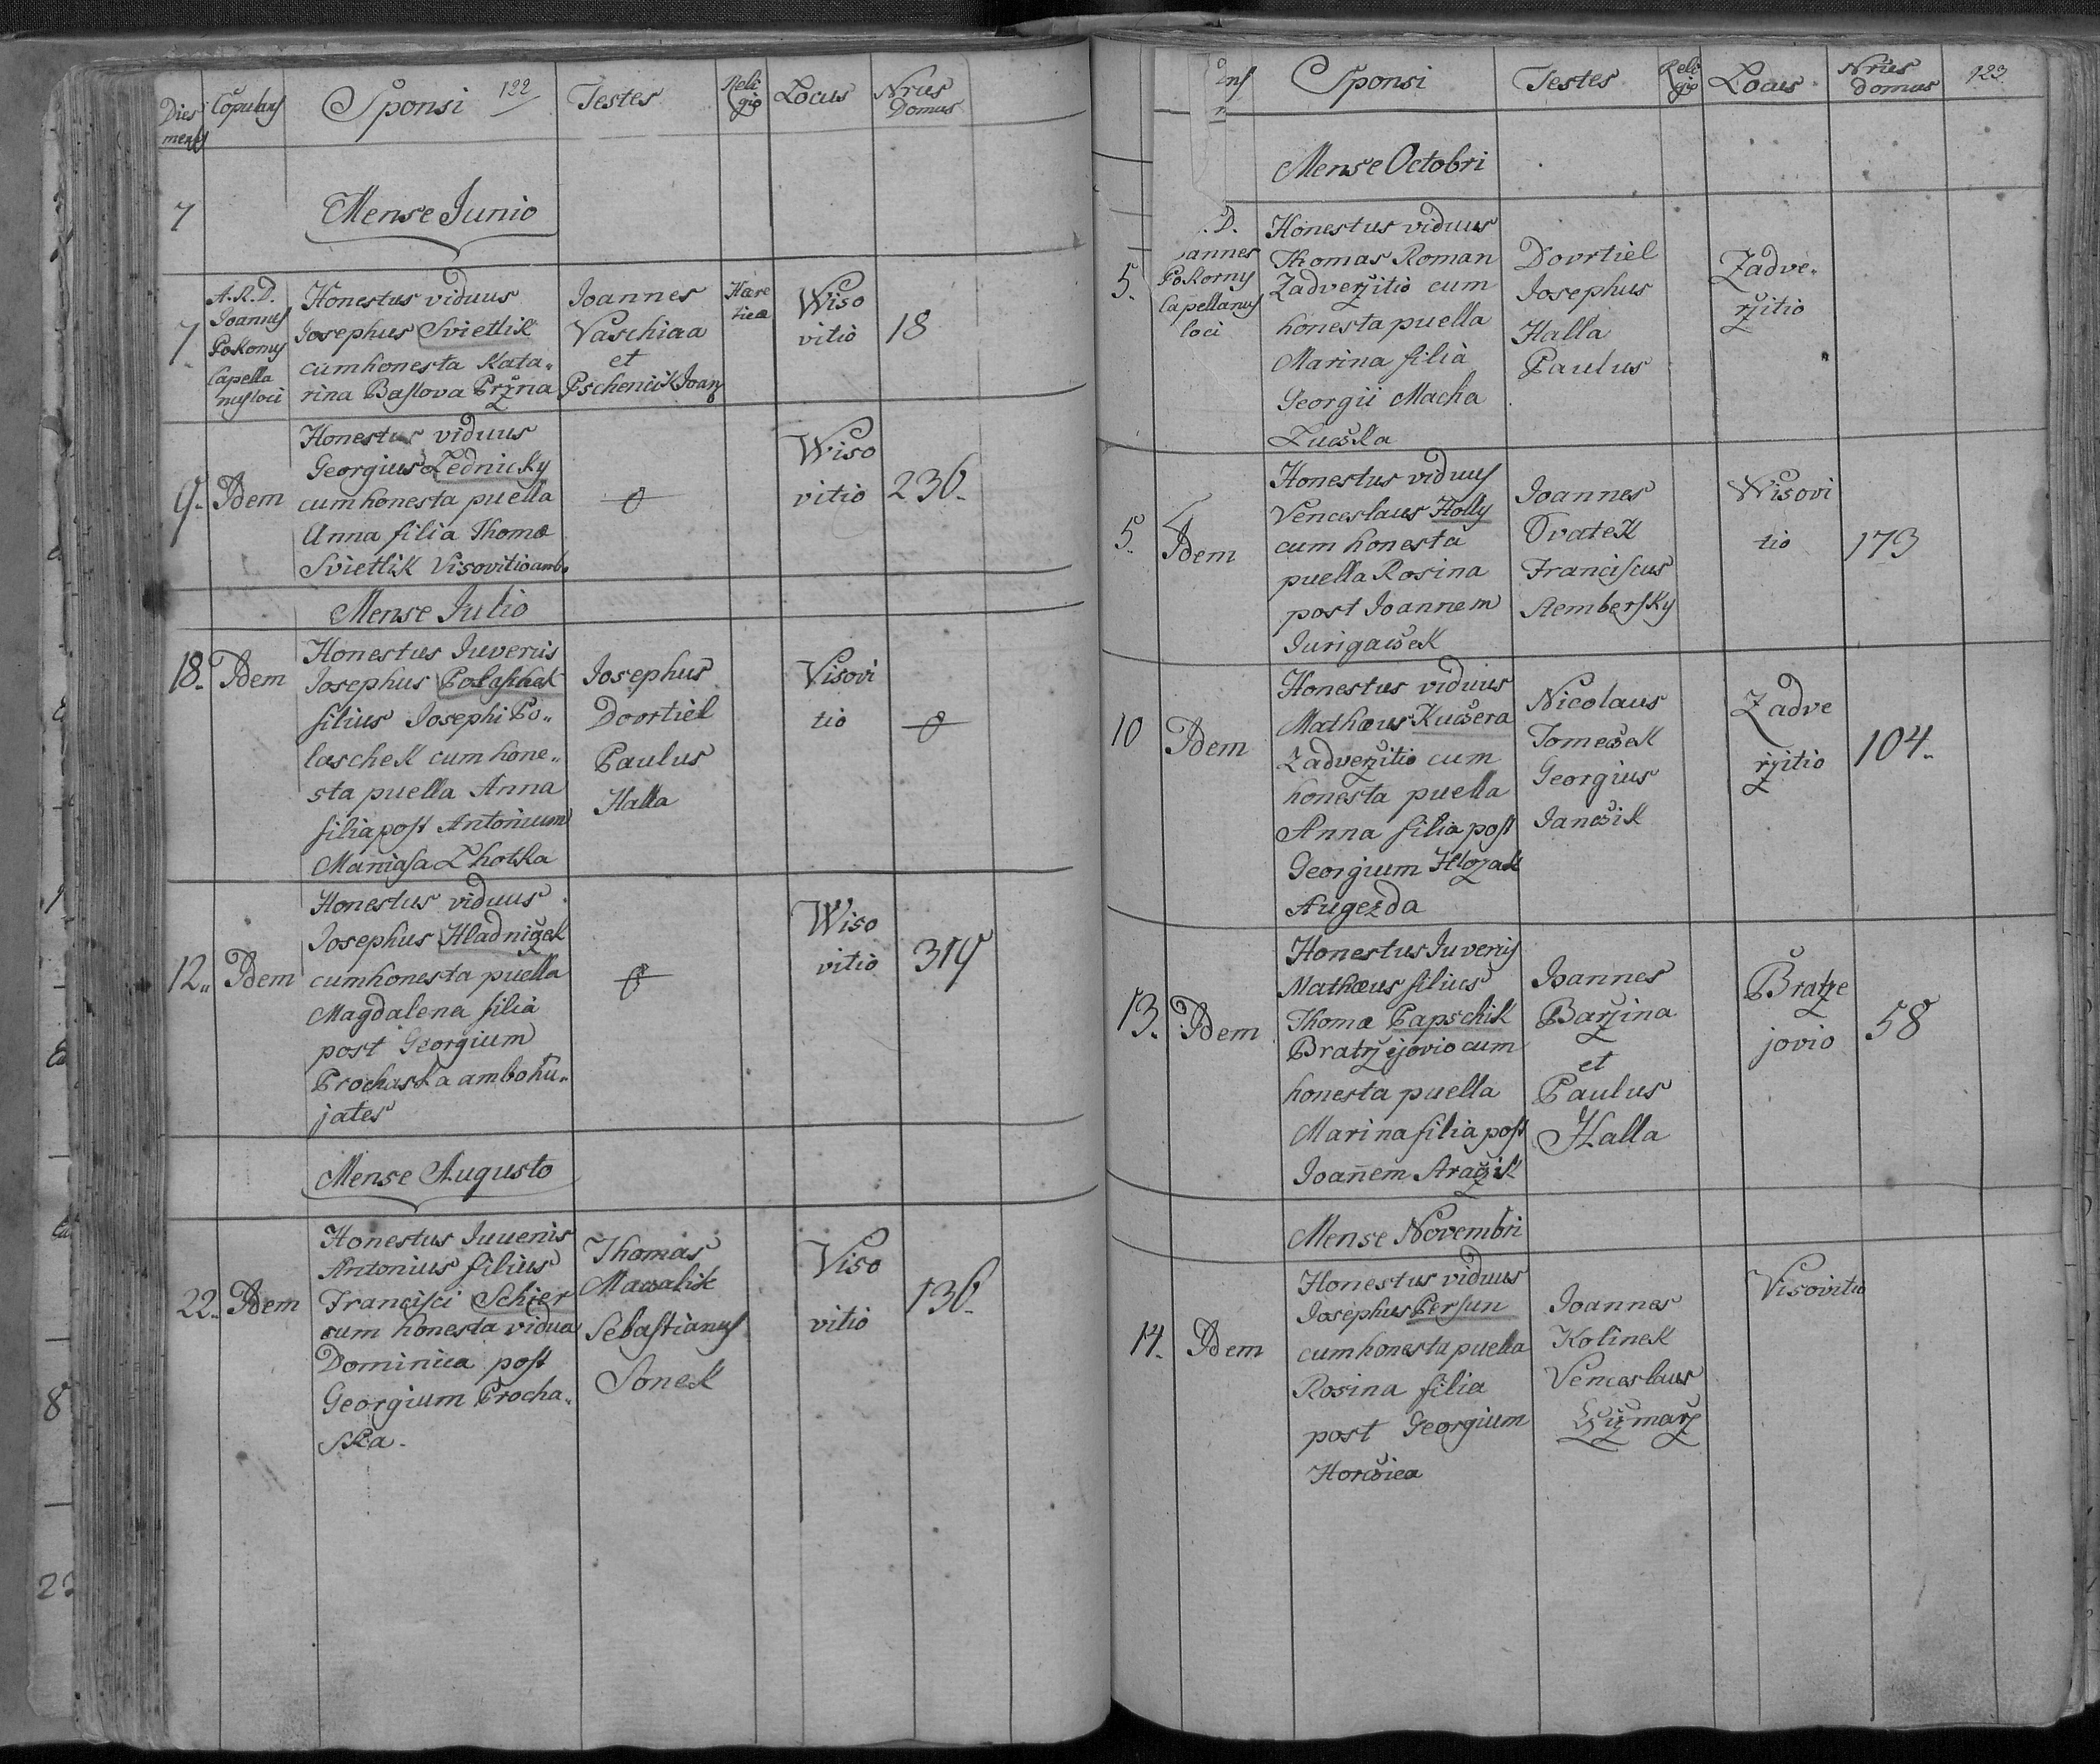 Dies mensis Copulans Sponsi 122 Testes Religio Locus Nrus Domus
Mense Junio
7
7. A.R.D. Joannes Pokorny Capellanus loci
Honestus viduus
Josephus Svietlik
cum honesta Kata„
rina Baslova Pržna
Joannes
Vaschiaa
et
Pschencik Joan
Hære
tica
Wiso
vitio
18
9. Idem
Honestus viduus
Georgius Zednicky
cum honesta puella
Anna filia Thomæ
Svietlik Visovitio amb.
Wiso
vitio
236.
Mense Julio
18. Idem
Honestus Juvenis
Josephus Polaschek
filius Josephi Po„
laschek cum hone„
sta puella Anna
filia post Antonium
Maniasa Lhotka
Josephus
Dovrtiel
Paulus
Halla
Visovi
tio
12„ Idem
Honestus viduus
Josephus Hladnižek
cum honesta puella
Magdalena filia
post Georgium
Prochaska ambo hu„
jates
Wiso
vitio
319
Mense Augusto
22. Idem
Honestus Juuenis
Antonius filius
Francisci Schier
cum honesta vidua
Dominica post
Georgium Procha„
ska.
Thomas
Macalik
Sebastianus
Sonek
Viso
vitio
136.
Sponsi Testes Religio Locus Nrus domus 123.
Mense Octobri
5. .D.
oannes
Pokorny
Capellanus
loci
Honestus viduus
Thomas Roman
Zadveržitio cum
honesta puella
Marina filia
Georgii Macha
Lučka
Dovrtiel
Josephus
Halla
Paulus
Zadve„
ržitio
5. Idem
Honestus viduus
Venceslaus Holly
cum honesta
puella Rosina
post Joannem
Jurigaček
Joannes
Ovatek
Franciscus
Stembersky
Wisovi
tio
173
10 Idem
Honestus viduus
Mathæus Kučera
Zadveržitio cum
honesta puella
Anna filia post
Georgium Hložak
Augezda
Nicolaus
Tomeček
Georgius
Jančik
Zadve
ržitio
104.
13. Idem
Honestus Juvenis
Mathæus filius
Thomæ Papschik
Bratržejovio cum
honesta puella
Marina filia post
Joañem Stražik
Joannes
Baržina
et
Paulus
Halla
Bratže
jovio
58
Mense Novembri
14. Idem
Honestus viduus
Josephus Persun
cum honesta puella
Rosina filia
post Georgium
Horčica
Joannes
Kolinek
Venceslaus
Čižmarž
Visovitio